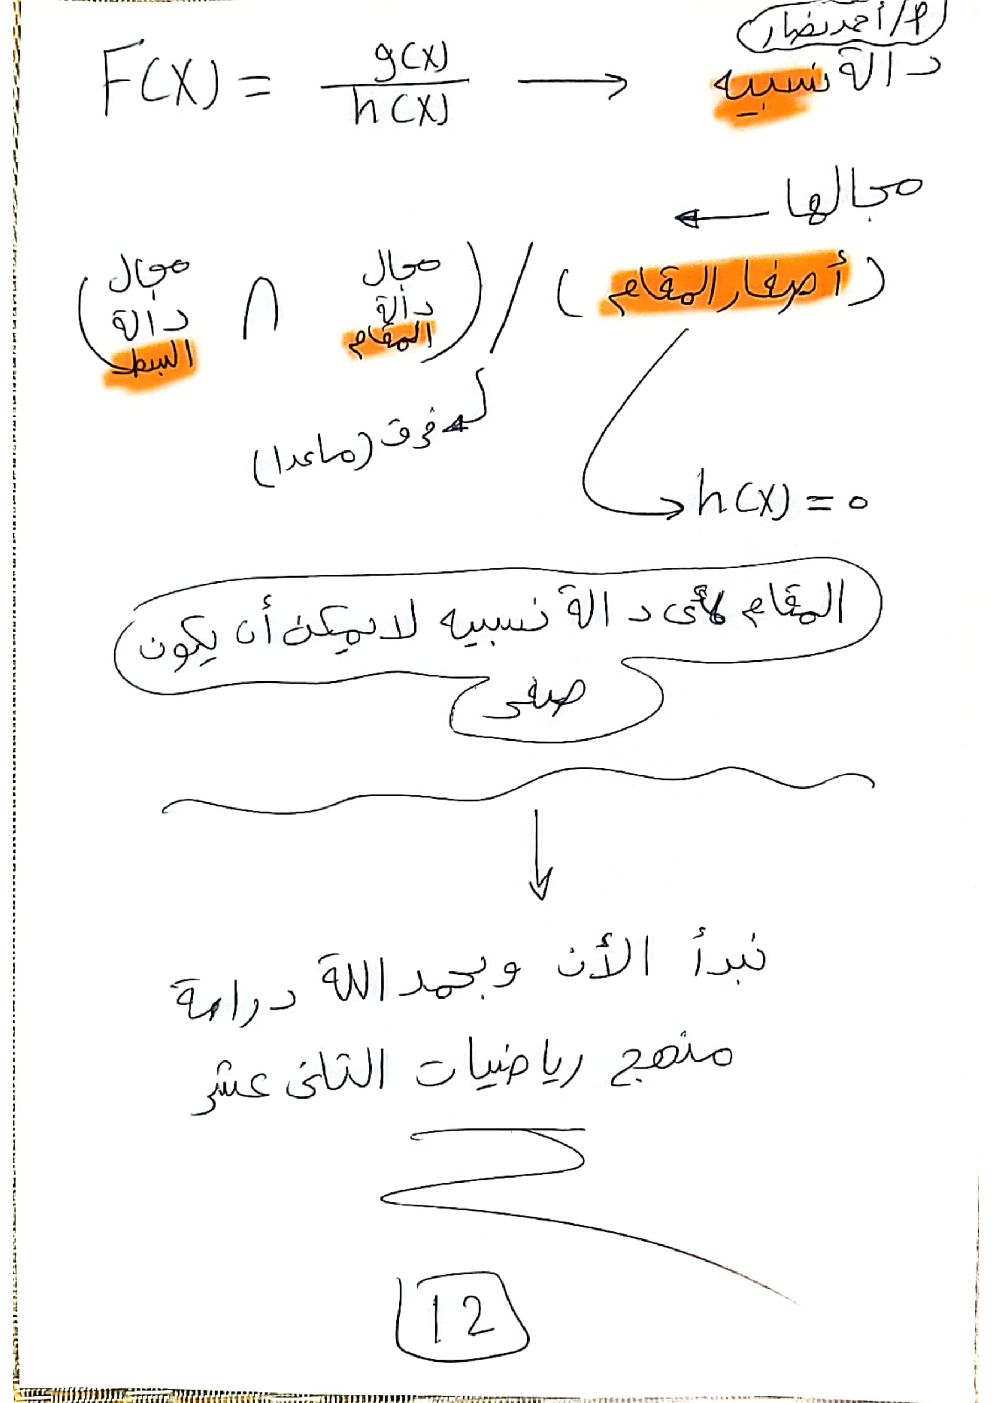 م/أحمد نصار
F(X) = g(x) / h(x) ⟶ دالة نسبيه
مجالها ←
(مجال دالة البسط ∩ مجال دالة المقام) / (أصفار المقام)
فرق (ماعدا)
h(x) = 0
المقام لأى دالة نسبيه لا يمكن أن يكون
صفر
نبدأ الأن وبحمد اللة دراسة
منهج رياضيات الثانى عشر
12